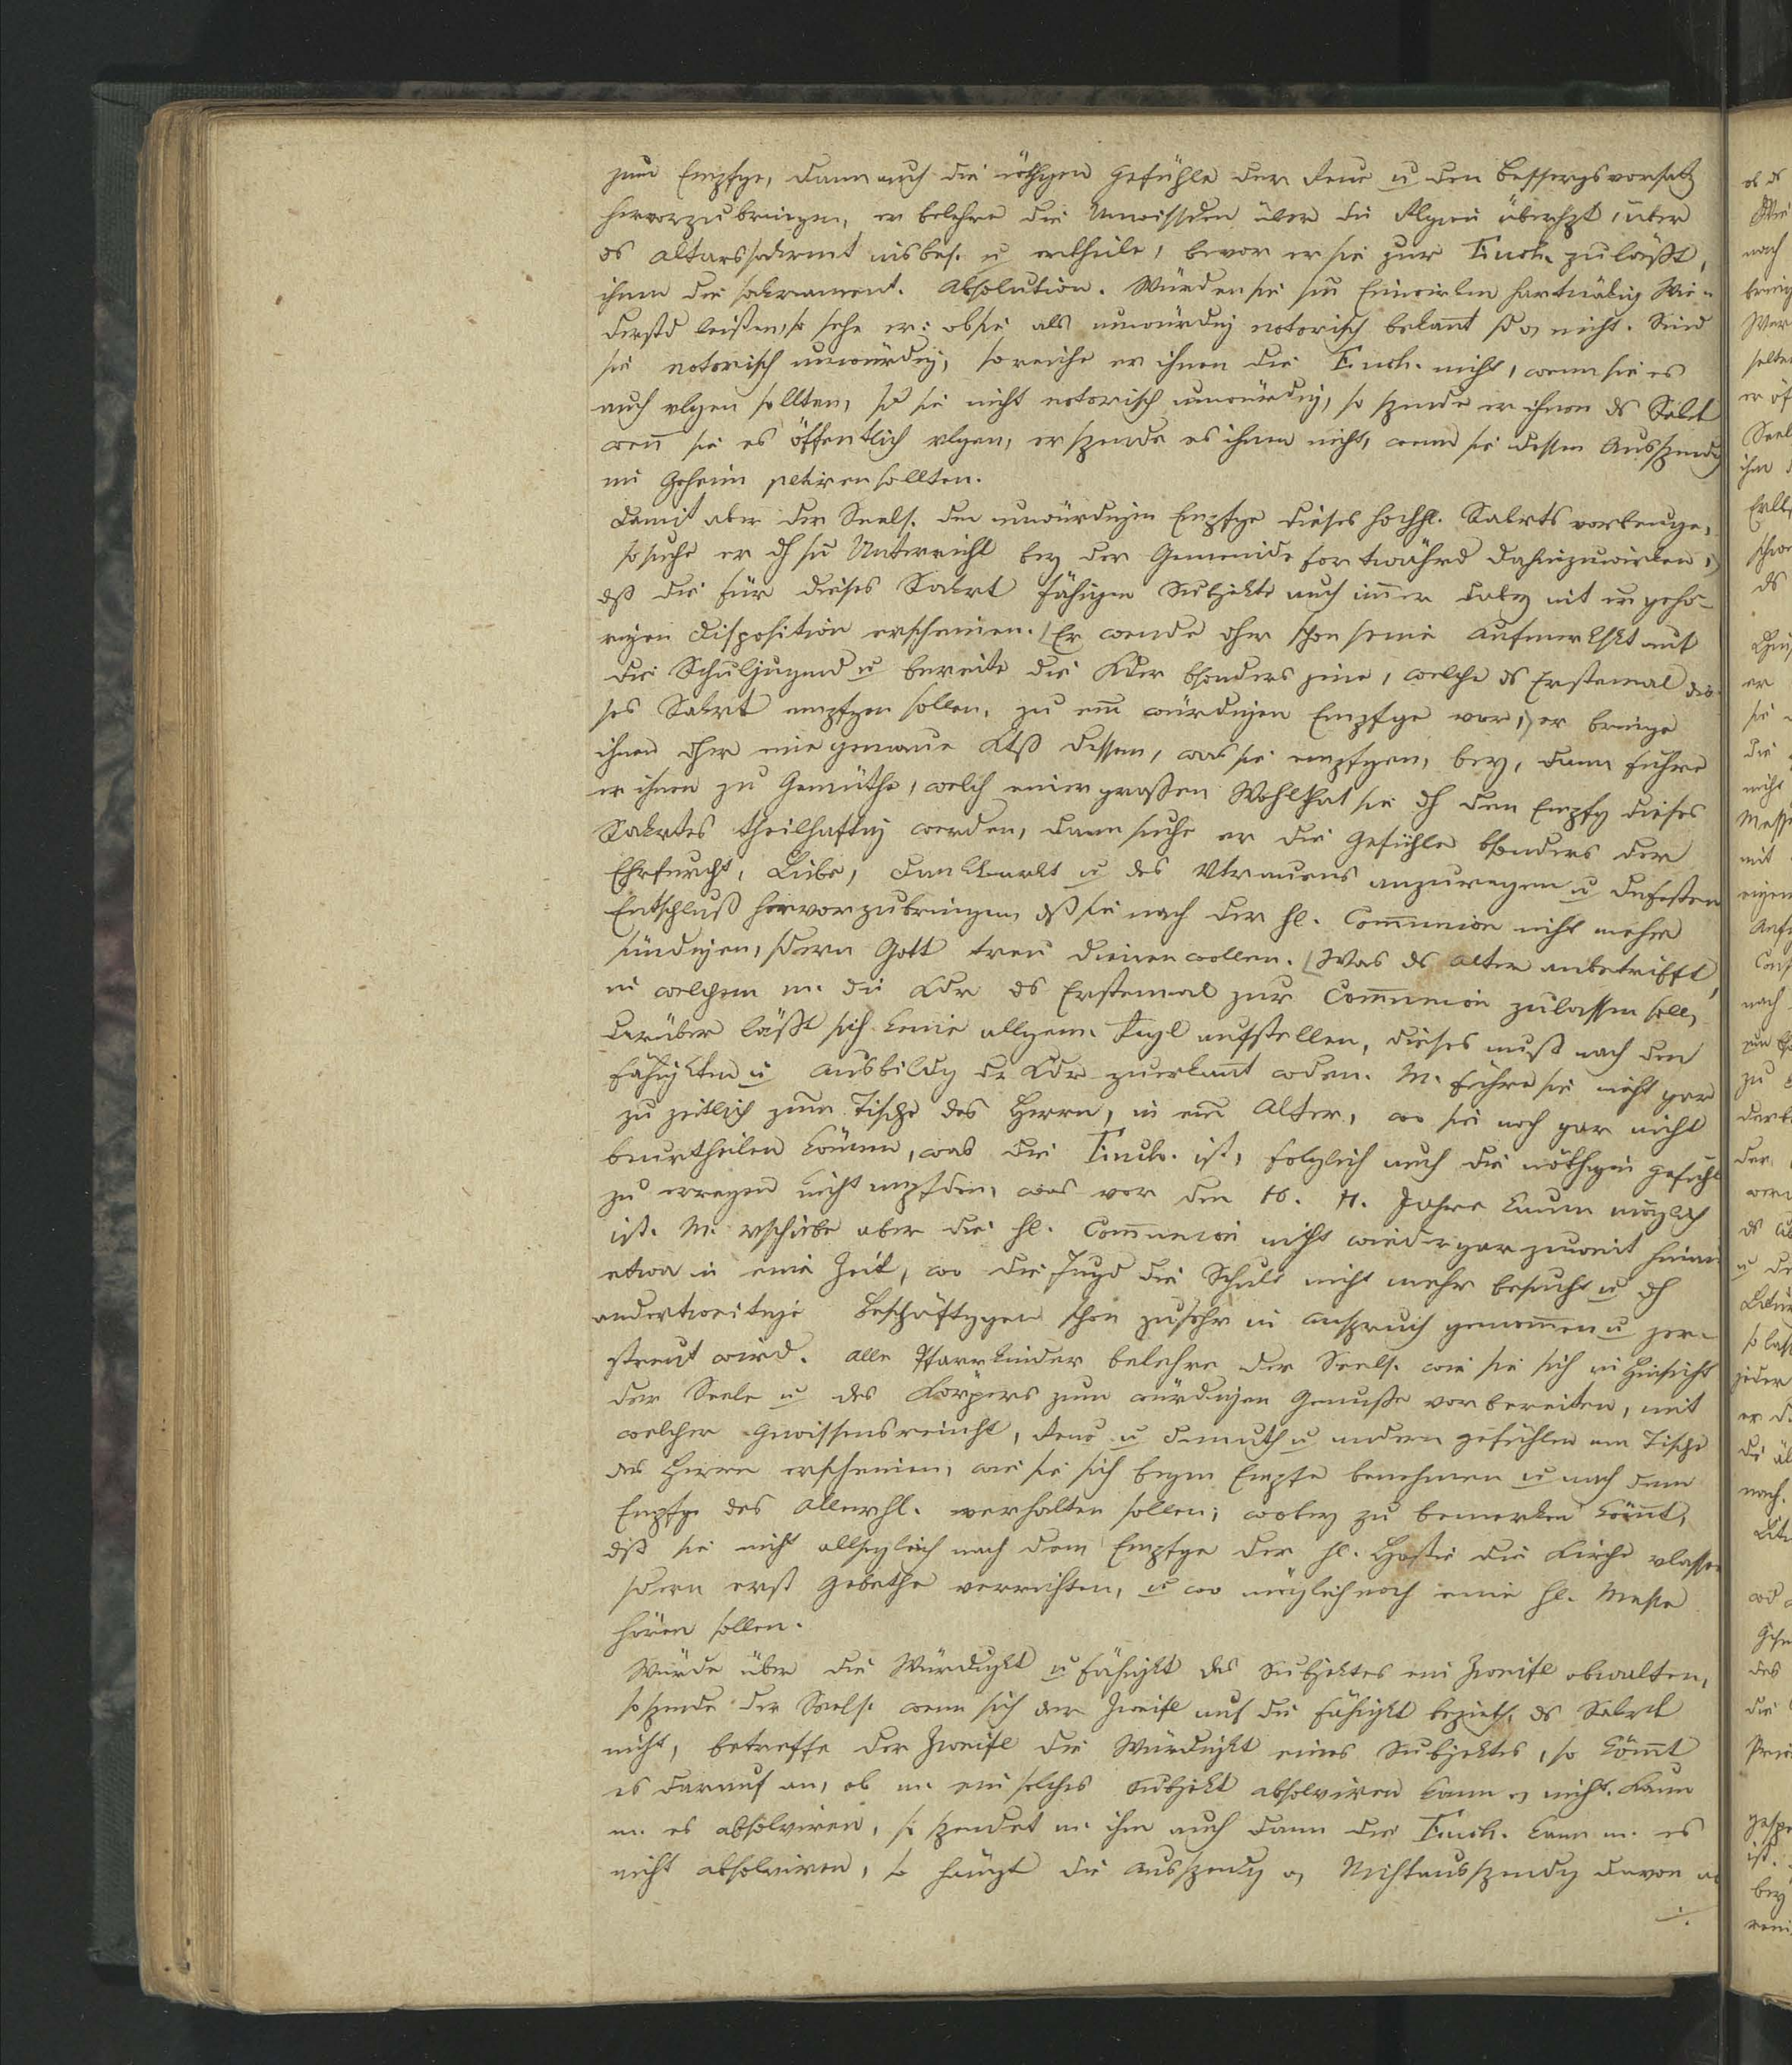 zum Empfge, dann auch die nöthgen Gefühle der Reue u den Bessergsvorsatz
hervorzubringen, er belehre die Unwissden über die Relgion überhpt, über
ds Altarssakrmt insbes. u ertheile, bevor er sie zur Euch. zuläßt,
ihnen die sakrament. Absolution. Würden sie sm Einwirken hartnäkig Wie-
derstd leisten, so sehe er: ob sie als unwürdig notorisch bekannt sd o nicht. Sind
sie notorisch unwürdig, so reiche er ihnen die Euch. nicht, wenn sie es
auch vlgen sollten, sd sie nicht notorisch unwürdig, so spende er ihnen ds Sakrt
wenn sie es öffentlich vlgen, er spende es ihnen nicht, wenn sie dessen Ausspendg
im Geheim petiren sollten.
Damit aber der Seels. den unwürdigen Empfge dieses hochhl. Sakrts vorbeuge,
so suche er dh sn Unterricht bey der Gemeinde fortwährd dahinzuwirken,
dß die für dieses Sakrt fähigen Subjekte auch immer dabey mit er gehö-
rigen Disposition erscheinen. Er wende dher schon seine Aufmerkskt auf
die Schuljugend u bereite die Kder bsonders jene, welche ds Erstemal die-
ses Sakrt empfgen sollen, zu em würdigen Empfge vor, er bringe
ihnen dher eine genaue Ktß dessen, was sie empfgen, bey, dann führe
er ihnen zu Gemüthe, welch einer großen Wohlthat sie dh den Empfg dieses
Sakrtes theilhaftig werden, dann suche er die Gefühle bsonders der
Ehrfurcht, Liebe, Dankbarkt u des Vtrauens anzuregen u den festen
Entschluß hervorzubringen, dß sie nach der hl. Communion nicht mehr
sündigen, sdern Gott treu dienen wollen. Was ds Alter anbetrifft,
in welchem m. die Kdr ds Erstemal zur Communion zulassen soll,
darüber läßt sich keine allgem. Regl aufstellen, dieses muß nach den
Fähigkten u Ausbildg dr Kdr zuerkannt wden. M. führe sie nicht gar
zu zeitlich zum Tische des Herrn, in em Alter, wo sie noch gar nicht
beurtheilen können, was die Euch. ist, folglich auch die nöthigen Gefühle
zu erregen nicht, was vor den 10. 11. Jahre kaum möglich
ist. M. vschiebe aber die hl. Communion nicht wieder gar zu weit hinaus
etwa in eine Zeit, wo die Jugd die Schule nicht mehr besucht u dh
anderweitige Beschäftggen schon zusehr in Anspruch genommen u zer-
streut wird. Alle Pfarrkinder belehre der Seels. wie sie sich in Hinsicht
der Seele u des Körpers zum würdigen Genuße vorbereiten, mit
welcher Gewissensreinht, Reue u Demuth u andern Gefühlen am Tische
des Herrn erscheinen, wie sie sich beym Empfe benehmen u nach dem
Empfge des Allerhl. verhalten sollen; wobey zu bemerken kömmt,
dß sie nicht allsogleich nach dem Empfge der hl. Hostie die Kirche vlassen
sdern erst Gebethe verrichten, u wo möglich noch eine hl. Messe
hören sollen.
Würde über die Würdigkt u Fähigkt des Subjektes ein Zweifl obwalten,
so spende der Seels. wenn sich der Zweifl auf die Fähigkt bezieht, ds Sakrt
nicht, betreffe der Zweifl die Würdigkt eines Subjektes, so kömmt
es darauf an, ob m. ein solches Subjekt absolviren kann o nicht. Kann
m. es absolviren, so spendet m. ihm auch dann die Euch. kann m. es
nicht absolviren, so hängt die Ausspendg o Nichtausspendg davon ab